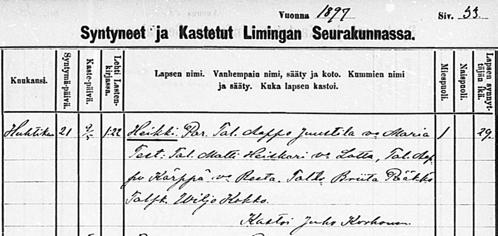 Vuonna 1897 Siv. 33.
Syntyneet ja Kastetut Limingan Seurakunnassa.
Kuukausi. Syntymä-päivä. Kaste-päivä. Lehti Lasten-kirjassa. Lapsen nimi. Vanhempain nimi, sääty ja koto. Kummien nimi ja sääty. Kuka lapsen kastoi. Miespuoli. Naispuoli. Lapsen synnyttäjän ikä.
Huhtiku 21 122 Heikki: Par. Tal. Aappo Juustila vs Maria 1 29.
Test. Tal. Matti Heiskari vs Lotta, Tal. Aap-
po Kärppä vs Reeta, Briita Pääkkö
Wiljo Hokko.
Kastoi Juho Korhonen